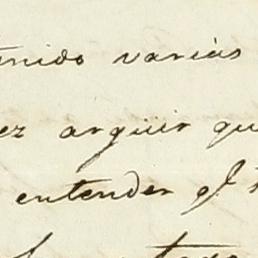 tenido varias
ez argüir qu
entender el